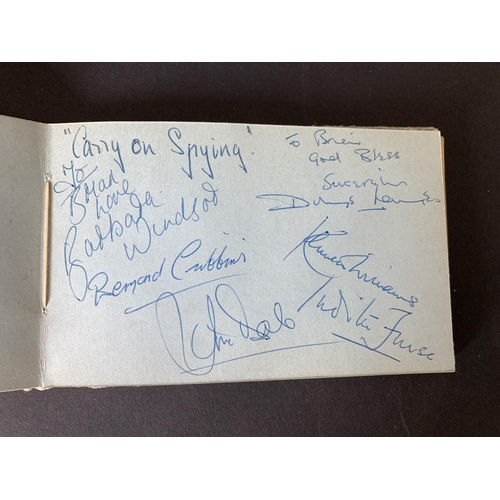 "Carry on Spying."
To
Brian
love
Barbara
Windsor
Bernard Cribbins
To Brian
God Bless
Sincerely
Kenneth Williams
Judith Furse